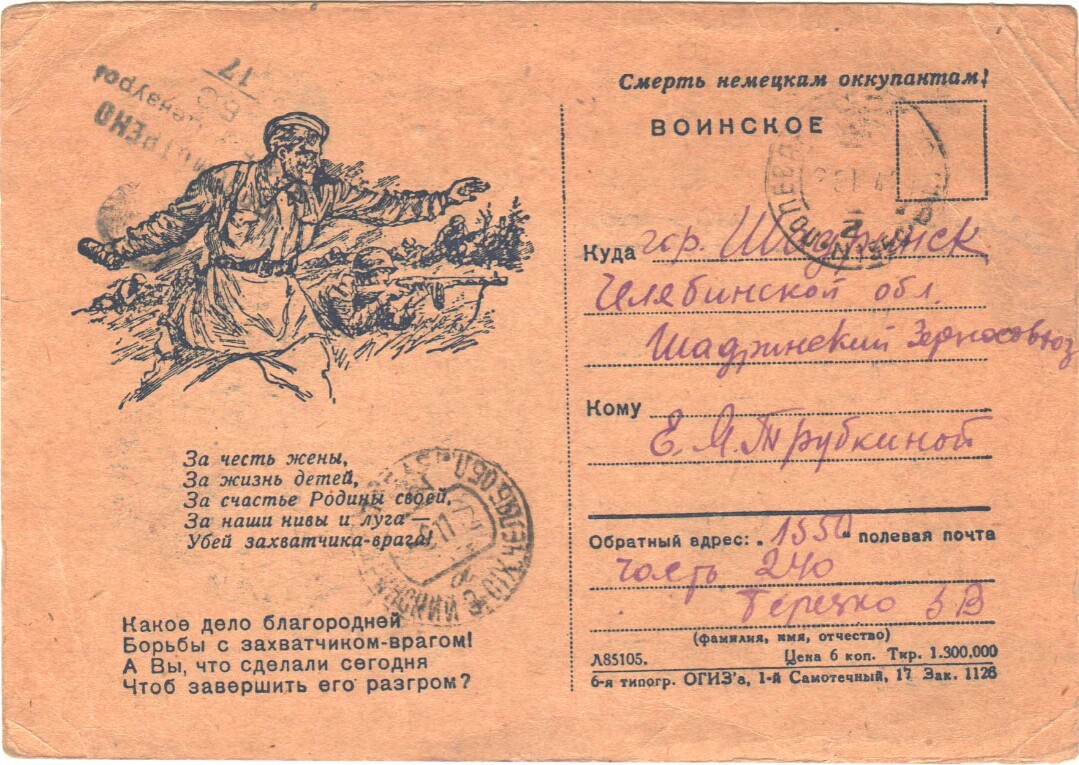 Смерть немецким оккупантам!
ВОИНСКОЕ
Куда гор. Шадринск
Челябинской обл.
Шадринский Зерносовхоз
Кому
Е. Я. Трубкиной
Обратный адрес: „1550“ полевая почта
часть 240
(фамилия, имя, отчество)
Л85105. Цена 6 коп. Тир. 1.300.000
6-я типогр. ОГИЗ'а, 1-й Самотечный, 17 Зак. 1126
За честь жены,
За жизнь детей,
За счастье Родины своей,
За наши нивы и луга —
Убей захватчика-врага!
Какое дело благородней
Борьбы с захватчиком-врагом!
А Вы, что сделали сегодня
Чтоб завершить его разгром?